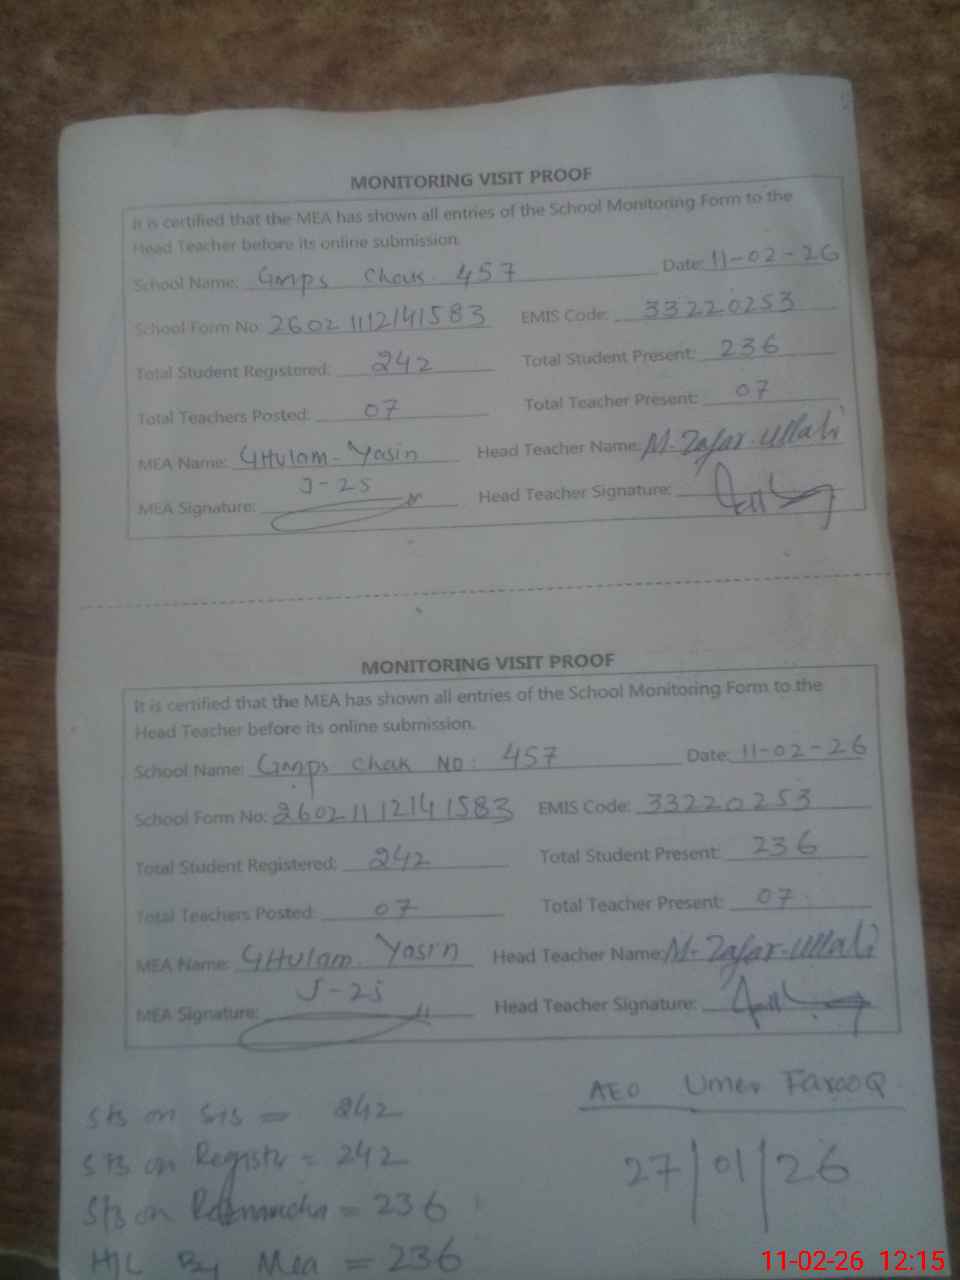 MONITORING VISIT PROOF
It is certified that the MEA has shown all entries of the School Monitoring Form to the
Head Teacher before its online submission.
School Name: Gmps Chak 457 Date: 11-02-26
School Form No: 26021112141583 EMIS Code: 33220253
Total Student Registered: 242 Total Student Present: 236
Total Teachers Posted: 07 Total Teacher Present: 07
MEA Name: GHulam-Yasin Head Teacher Name: M-Zafar-Ullah
J-25
MEA Signature: Head Teacher Signature:
MONITORING VISIT PROOF
It is certified that the MEA has shown all entries of the School Monitoring Form to the
Head Teacher before its online submission.
School Name: Gmps Chak NO: 457 Date: 11-02-26
School Form No: 26021112141583 EMIS Code: 33220253
Total Student Registered: 242 Total Student Present: 236
Total Teachers Posted: 07 Total Teacher Present: 07
MEA Name: GHulam Yasin Head Teacher Name: M-Zafar-Ullah
J-25
MEA Signature: Head Teacher Signature:
AEO Umer FarooQ
Sts on SIS = 242
Sts on Registr = 242
27/01/26
Sts on = 236
H/C By Mea = 236
11-02-26 12:15